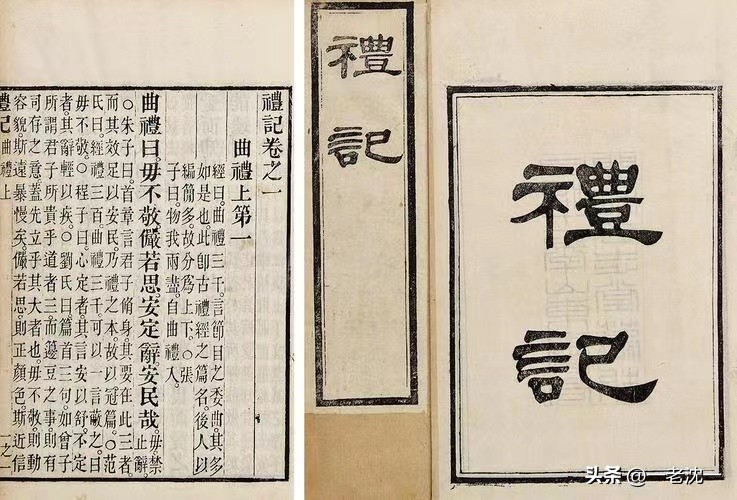 禮記卷之一
曲禮上第一
經曰。曲禮三千。言節目之委曲。其多
如是也。此卽古禮經之篇名。後人以
編簡多。故分爲上下。○張
子曰。物我兩盡。自曲禮入。
曲禮曰。毋不敬。儼若思。安定辭。安民哉。毋。禁止辭。
○朱子曰。首章言君子脩身。其要在此三者。
而其效足以安民。乃禮之本。故以冠篇。○范
氏曰。經禮三百。曲禮三千。可以一言蔽之。曰
毋不敬。○程子曰。心定者。其言安以舒。不定
者。其辭輕以疾。○劉氏曰。篇首三句。如曾子
所謂君子所貴乎道者三。而籩豆之事。則有
司存之意。蓋先立乎其大者也。毋不敬。則動
容貌。斯遠暴慢矣。儼若思。則正顏色。斯近信
禮記 曲禮上 一之一
禮記
禮記
头条 @一老沈